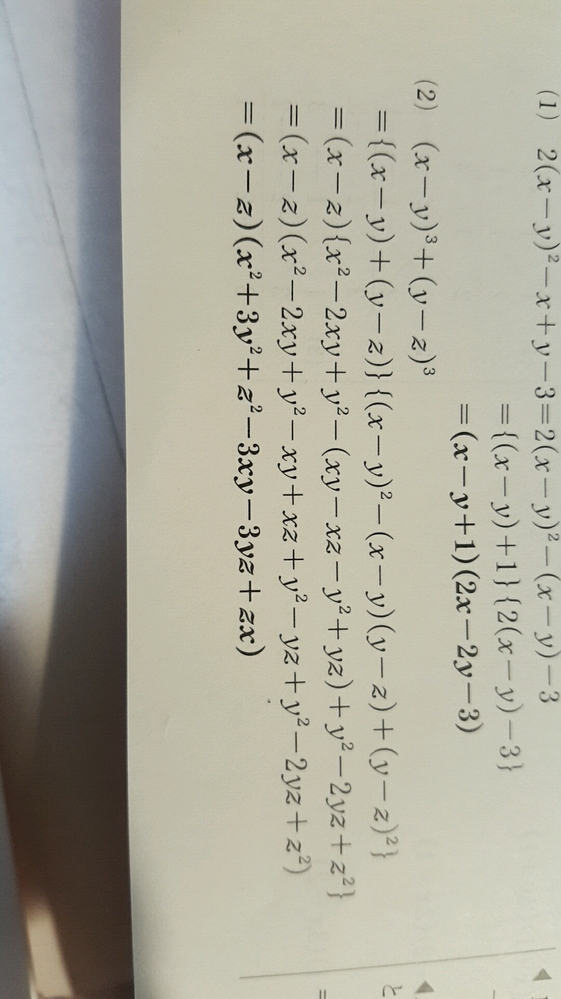 (1) 2(x−y)²−x+y−3=2(x−y)²−(x−y)−3
={(x−y)+1}{2(x−y)−3}
=(x−y+1)(2x−2y−3)
(2) (x−y)³+(y−z)³
={(x−y)+(y−z)}{(x−y)²−(x−y)(y−z)+(y−z)²}
=(x−z){x²−2xy+y²−(xy−xz−y²+yz)+y²−2yz+z²}
=(x−z)(x²−2xy+y²−xy+xz+y²−yz+y²−2yz+z²)
=(x−z)(x²+3y²+z²−3xy−3yz+zx)
と
=